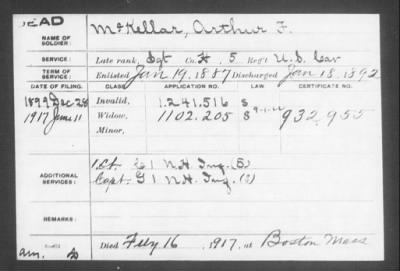 EAD
NAME OF SOLDIER: McKellar, Arthur F.
SERVICE: Late rank, Sgt Co. H, 5 Reg't U.S. Cav
TERM OF SERVICE: Enlisted Jan 19, 1887 Discharged Jan 18, 1892
DATE OF FILING. CLASS. APPLICATION NO. LAW CERTIFICATE NO.
1899 Dec 28 Invalid, 1.241.516 S
1917 June 11 Widow, 1102.205 S 932.955
Minor,
1 Lt. C 1 N.H. Inf. (S)
ADDITIONAL SERVICES: Capt. G 1 N.H. Inf. (S)
REMARKS:
Died Feby 16, 1917, at Boston Mass